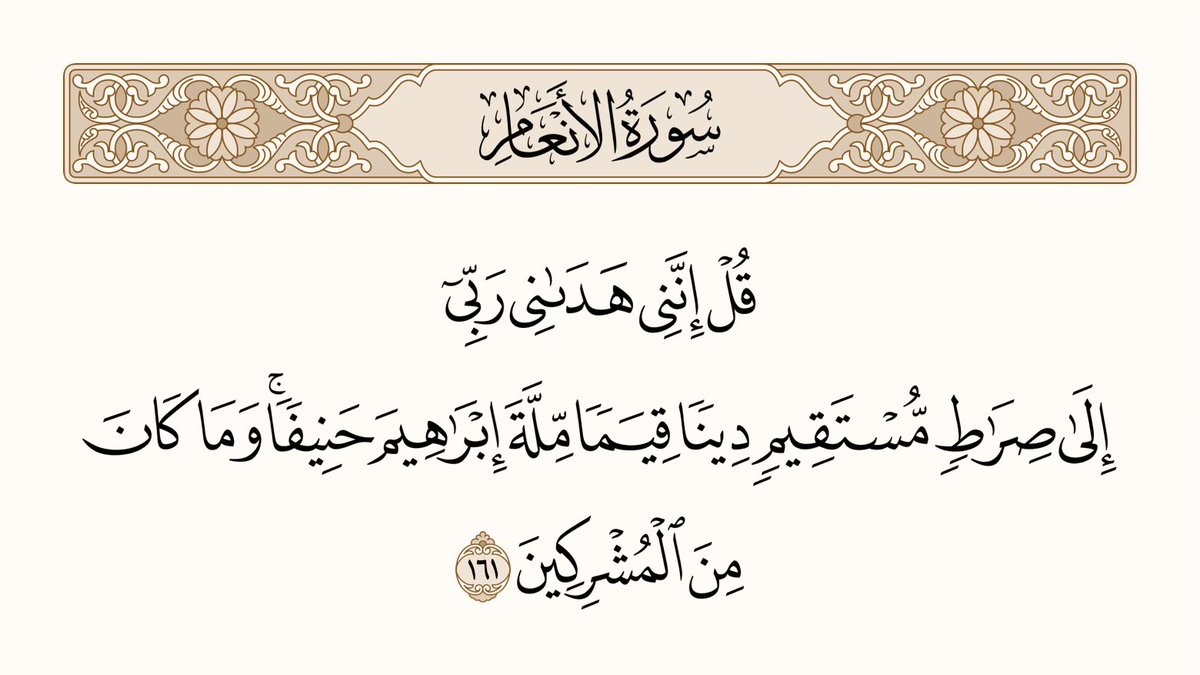 سُورَةُ الأَنْعَامِ
قُلْ إِنَّنِى هَدَىٰنِى رَبِّىٓ
إِلَىٰ صِرَٰطٍ مُّسْتَقِيمٍ دِينًا قِيَمًا مِّلَّةَ إِبْرَٰهِيمَ حَنِيفًا ۚ وَمَا كَانَ
مِنَ ٱلْمُشْرِكِينَ ١٦١